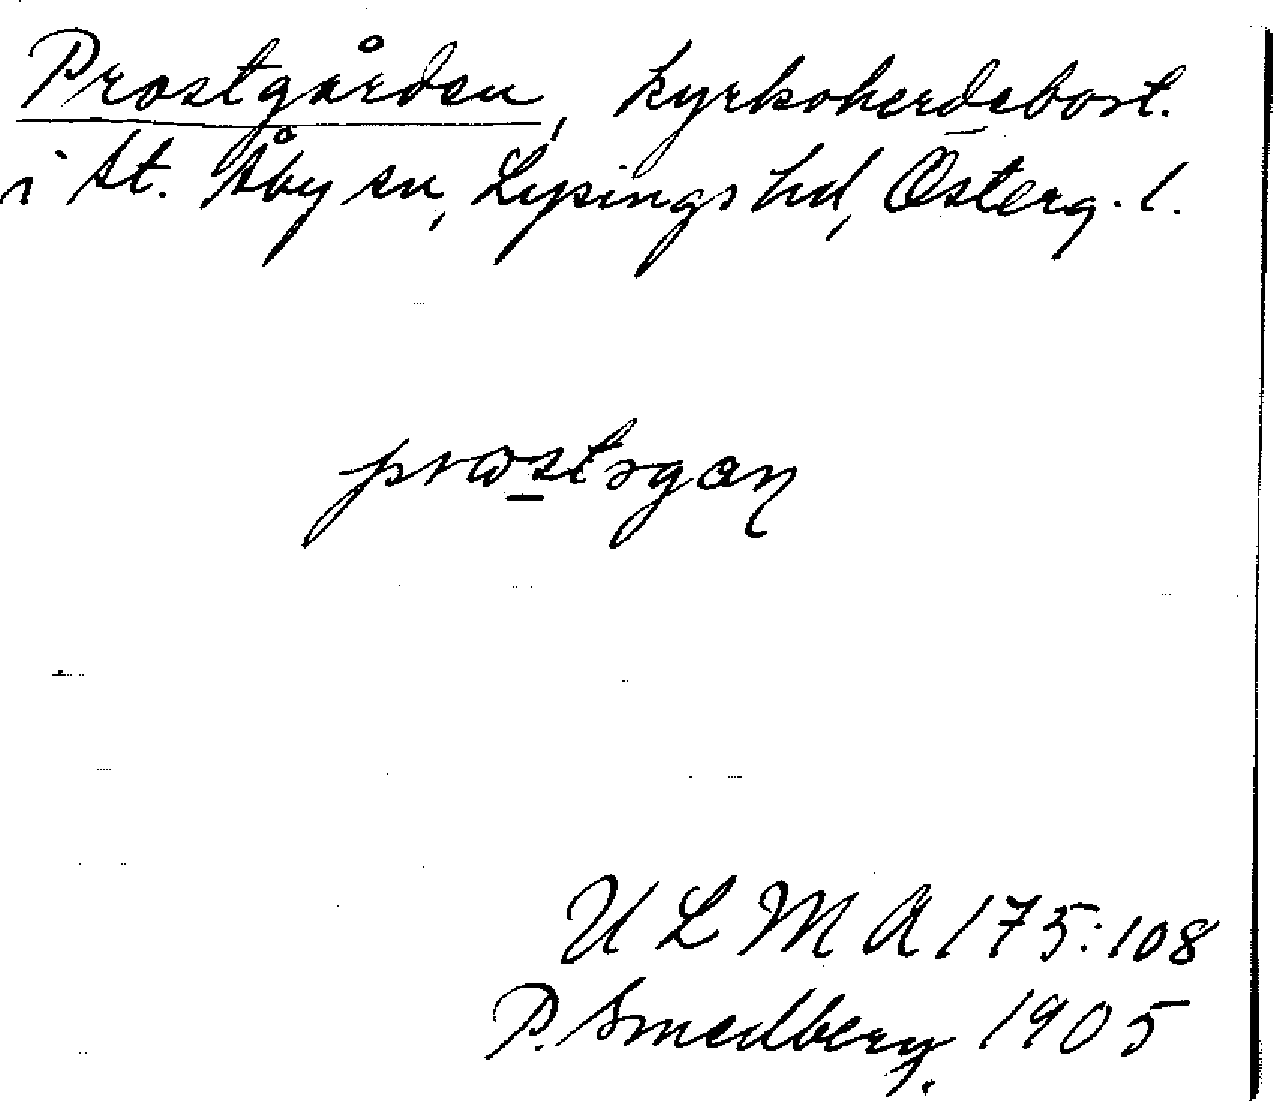 Prostgården, kyrkoherdebost.
i St. Åby sn, Lysings hd, Österg. l.
prɷstɘgɑɳ
U L M A 175:108
P. Smedberg. 1905